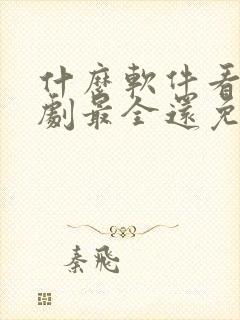 什麼軟件看
劇最全還免
秦飛